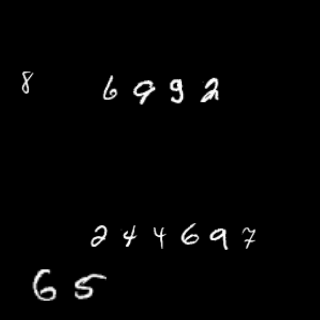 8 6992
244697
65